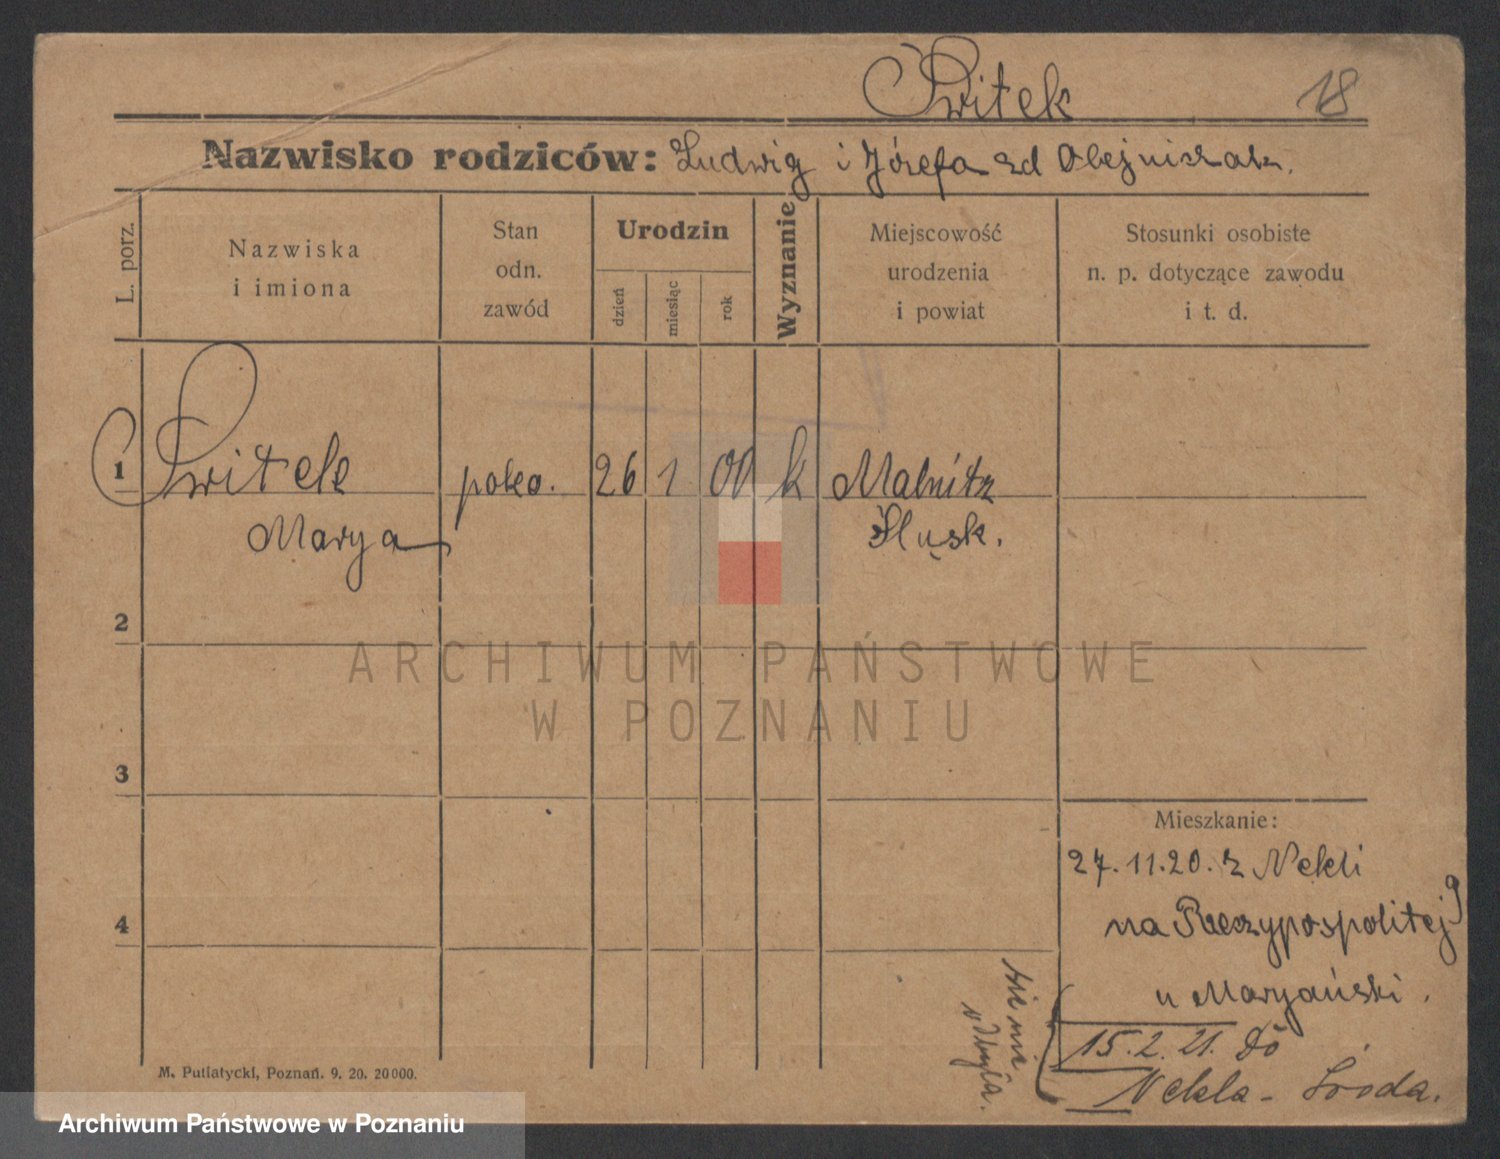 Switek 18
Nazwisko rodziców: Ludwig i Józefa zd Olejniczak.
L. porz.
Nazwiska
i imiona
Stan
odn.
zawód
Urodzin
dzień
miesiąc
rok
Wyznanie
Miejscowość
urodzenia
i powiat
Stosunki osobiste
n. p. dotyczące zawodu
i t. d.
1 Switek poko. 26 1 00 k Malnitz
Marya Śląsk.
2
3
4
Mieszkanie:
27.11.20. z Nekli
na Rzeczypospolitej 9
u Maryański.
15.2.21. do
Nekla - Środa.
nie
M. Putiatycki, Poznań. 9. 20. 20000.
ARCHIWUM PAŃSTWOWE
W POZNANIU
Archiwum Państwowe w Poznaniu